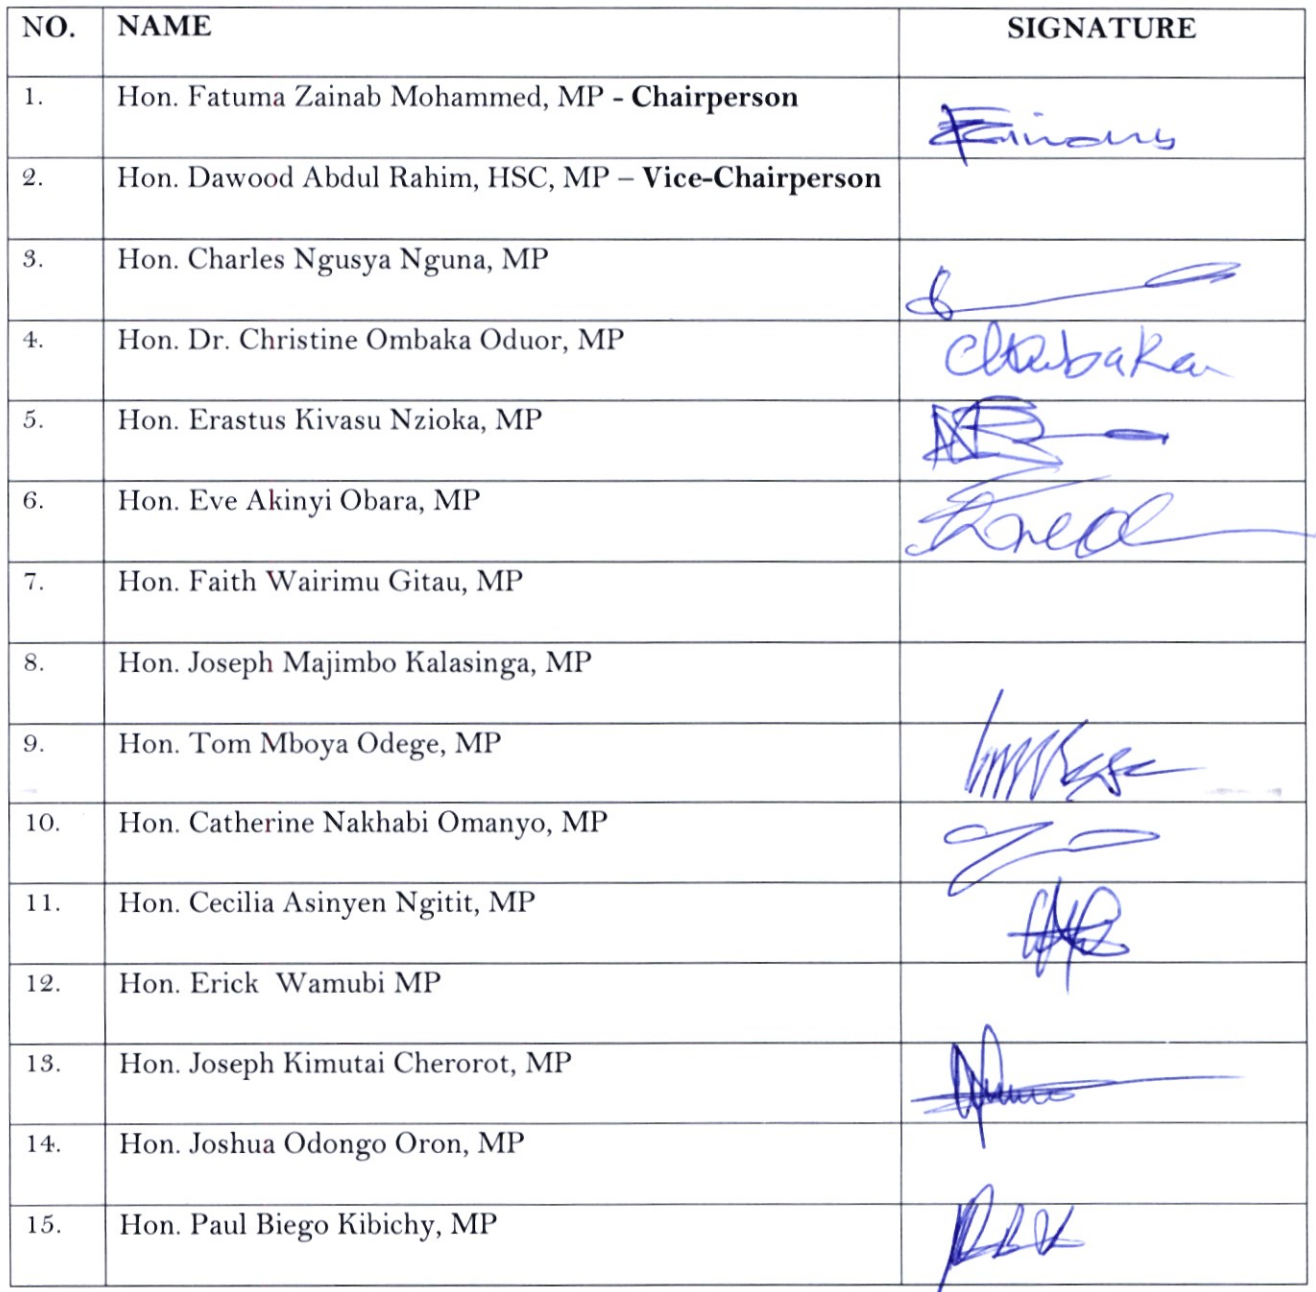 NO. NAME SIGNATURE
1. Hon. Fatuma Zainab Mohammed, MP - Chairperson
2. Hon. Dawood Abdul Rahim, HSC, MP – Vice-Chairperson
3. Hon. Charles Ngusya Nguna, MP
4. Hon. Dr. Christine Ombaka Oduor, MP
5. Hon. Erastus Kivasu Nzioka, MP
6. Hon. Eve Akinyi Obara, MP
7. Hon. Faith Wairimu Gitau, MP
8. Hon. Joseph Majimbo Kalasinga, MP
9. Hon. Tom Mboya Odege, MP
10. Hon. Catherine Nakhabi Omanyo, MP
11. Hon. Cecilia Asinyen Ngitit, MP
12. Hon. Erick Wamubi MP
13. Hon. Joseph Kimutai Cherorot, MP
14. Hon. Joshua Odongo Oron, MP
15. Hon. Paul Biego Kibichy, MP